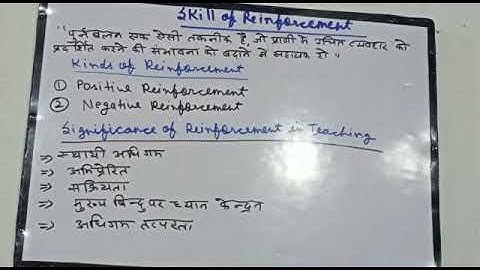 Skill of Reinforcement
"पुर्नबलन एक ऐसी तकनीक है, जो प्राणी के उचित व्यवहार को
प्रदर्शित करने की संभावना को बढ़ाने मे सहायक हो"
Kinds of Reinforcement
① Positive Reinforcement
② Negative Reinforcement
Significance of Reinforcement in Teaching
⇒ स्थायी अधिगम
⇒ अभिप्रेरित
⇒ सक्रियता
⇒ मुख्य बिन्दु पर ध्यान केन्द्रित
⇒ अधिगम तत्परता